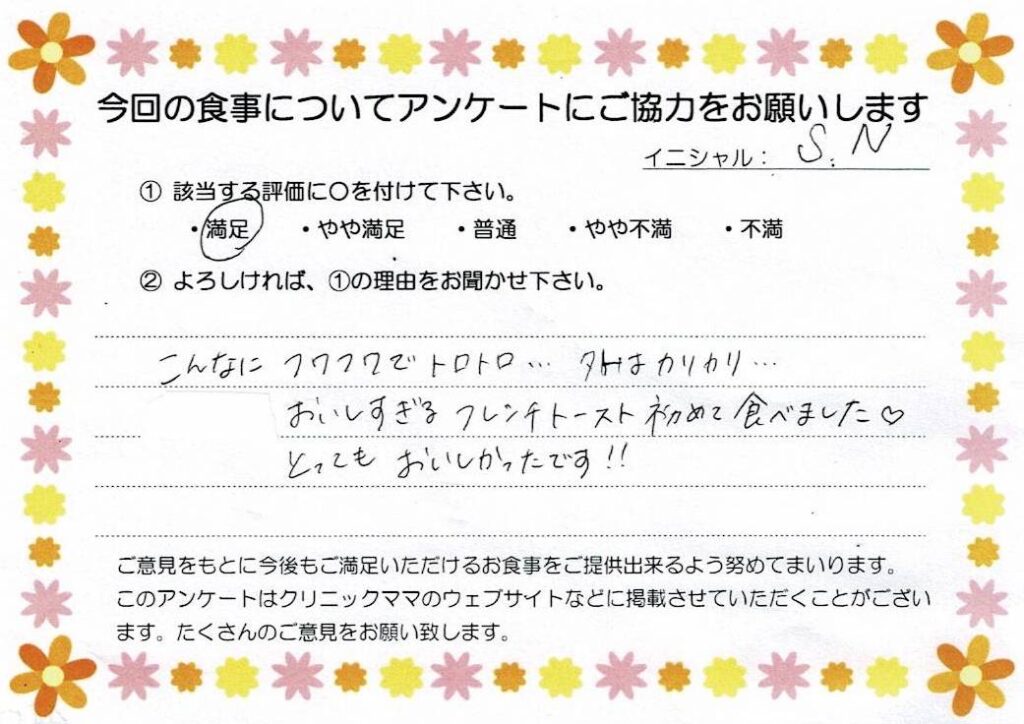 今回の食事についてアンケートにご協力をお願いします
イニシャル： S.N
① 該当する評価に〇を付けて下さい。
・満足 ・やや満足 ・普通 ・やや不満 ・不満
② よろしければ、①の理由をお聞かせ下さい。
こんなに フワフワで トロトロ… 外はカリカリ…
おいしすぎる フレンチトースト 初めて 食べました♡
とっても おいしかったです!!
ご意見をもとに今後もご満足いただけるお食事をご提供出来るよう努めてまいります。
このアンケートはクリニックママのウェブサイトなどに掲載させていただくことがござい
ます。たくさんのご意見をお願い致します。